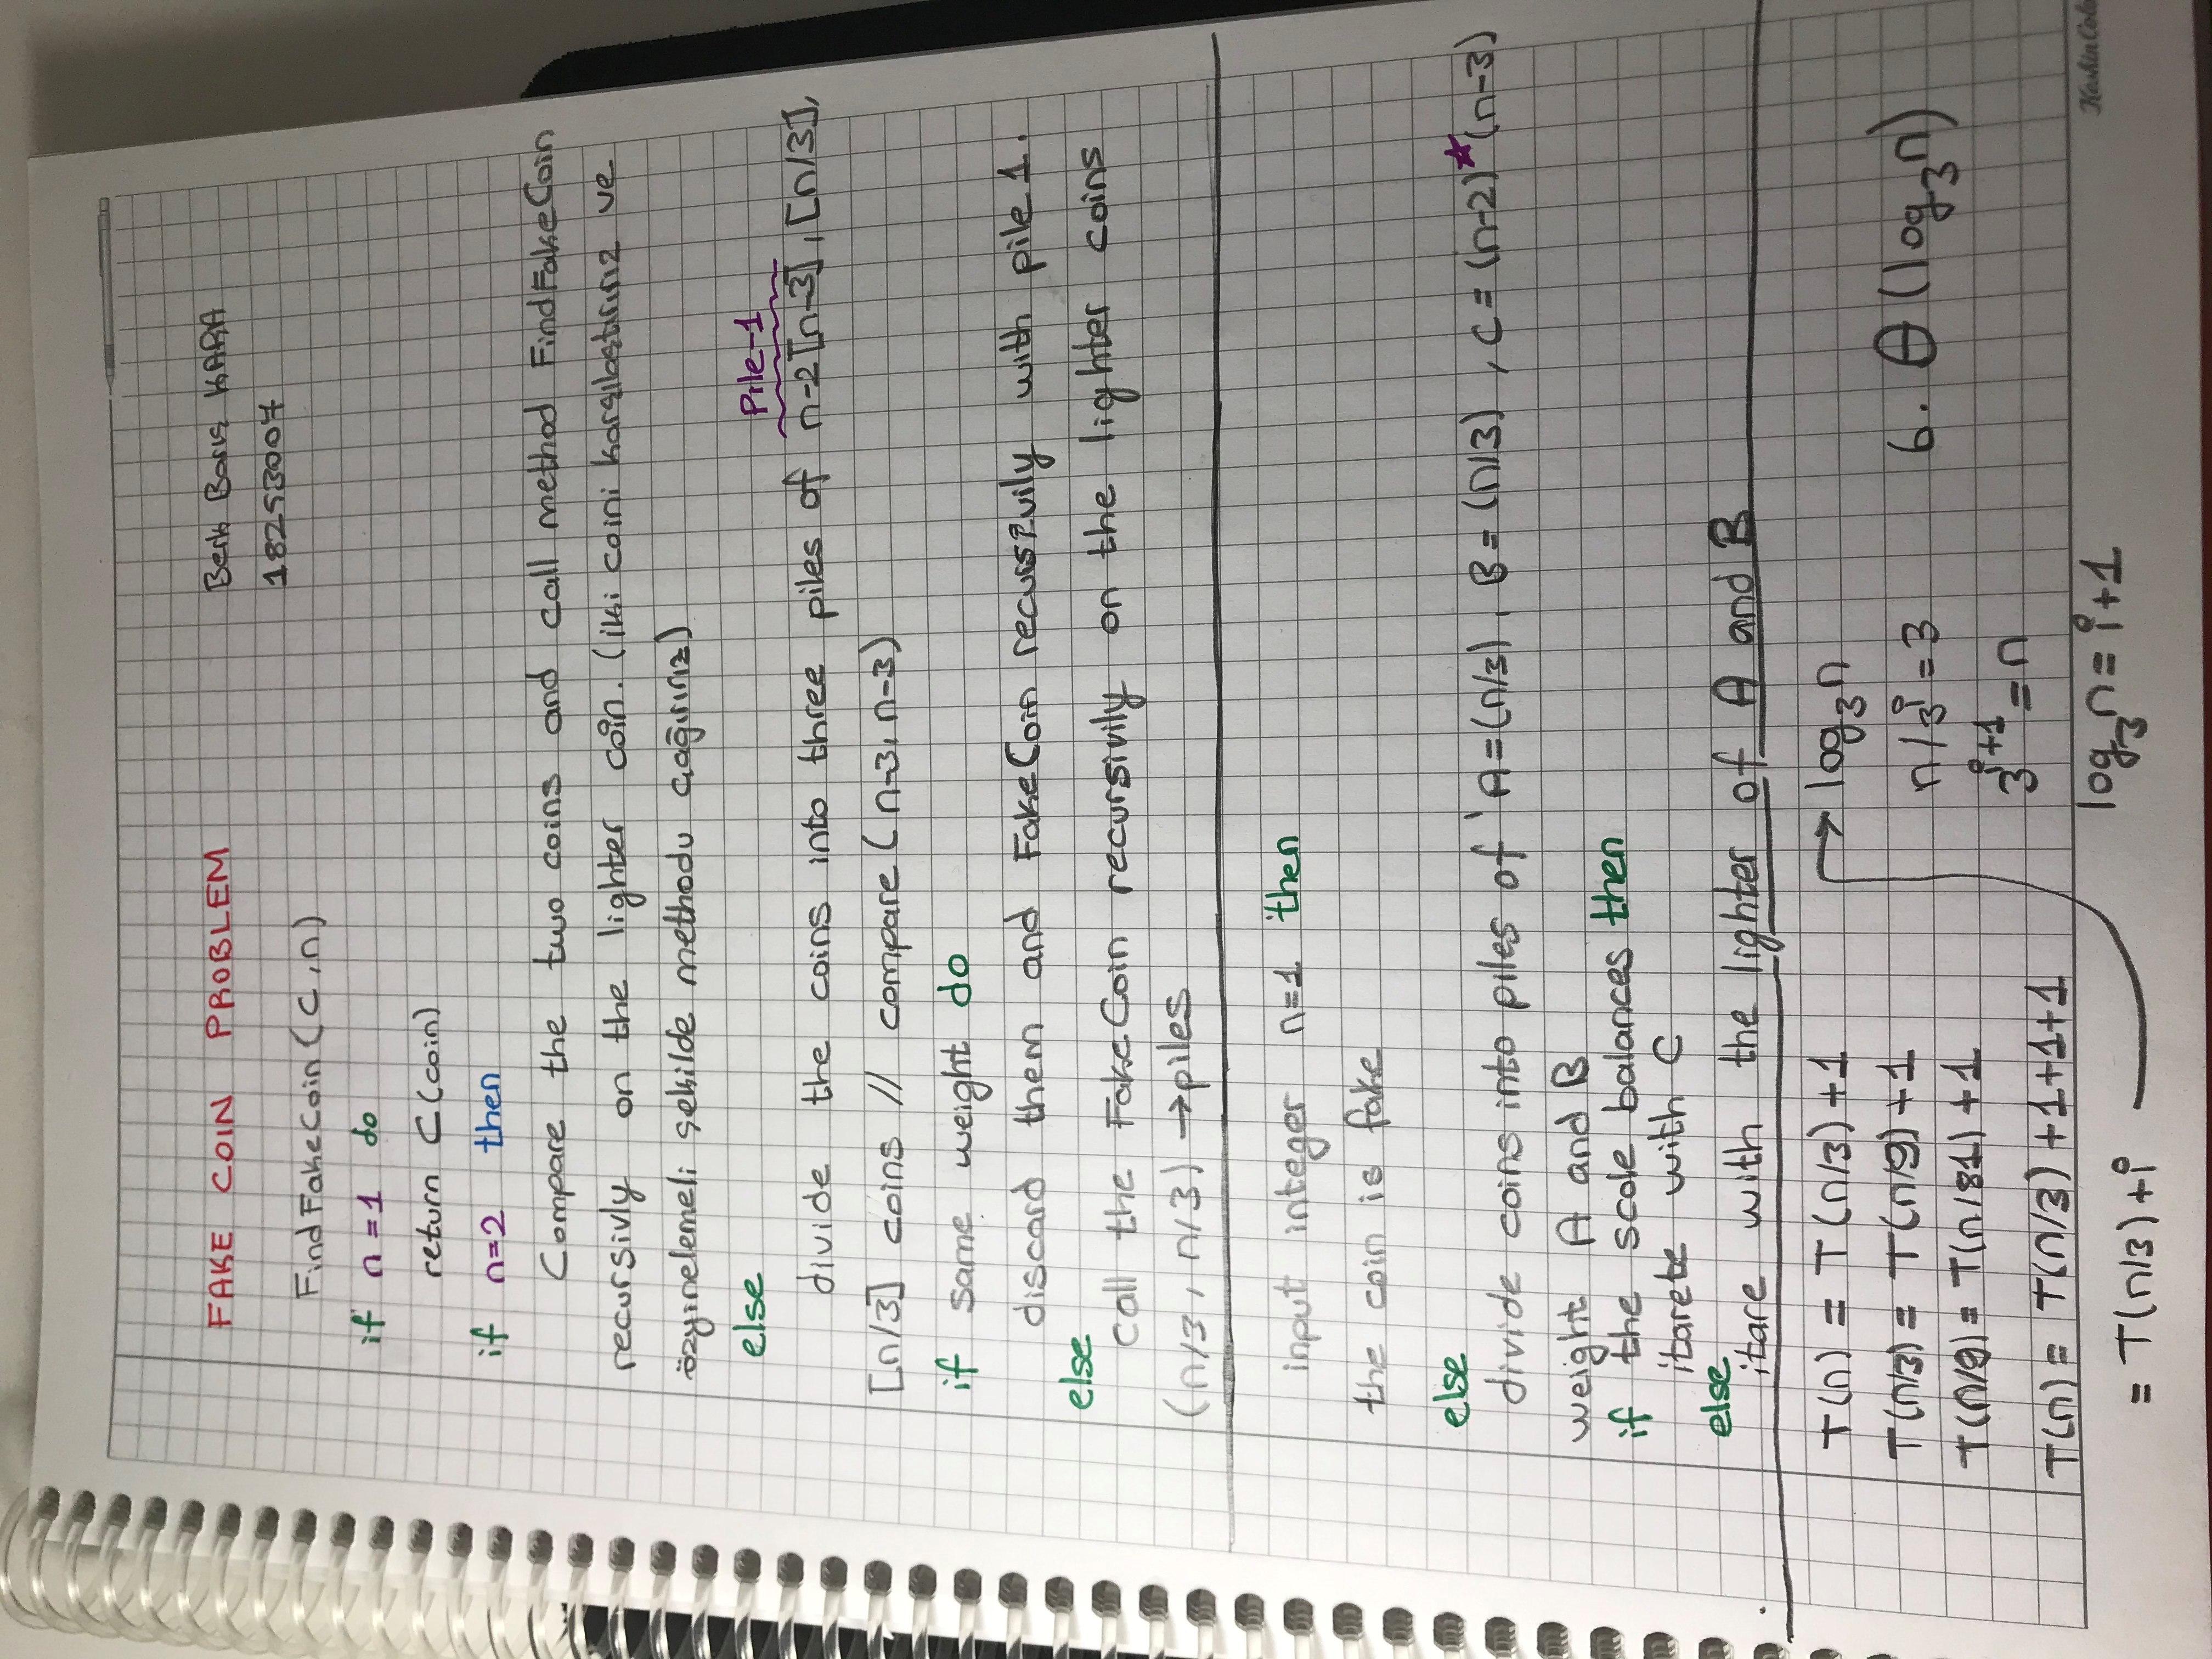 FAKE COIN PROBLEM
Berk Barış KARA
18253007
FindFakeCoin (C,n)
if n=1 do
return C(coin)
if n=2 then
Compare the two coins and call method FindFakeCoin
recursivly on the lighter coin. (iki coini karşılaştırırız ve
özyinelemeli şekilde methodu çağırırız)
else
Pile-1
divide the coins into three piles of n-2[n-3], [n/3],
[n/3] coins // compare (n-3, n-3)
if same weight do
discard them and FakeCoin recursivily with pile 1.
else
call the FakeCoin recursivily on the lighter coins
(n/3, n/3) →piles
input integer n=1 then
the coin is fake
else
divide coins into piles of A=(n/3), B=(n/3), C=(n-2)*(n-3)
weight A and B
if the scale balances then
itarete with C
else
itare with the lighter of A and B
T(n) = T(n/3)+1
T(n/3) = T(n/9)+1
T(n/9) = T(n/81)+1
T(n) = T(n/3)+1+1+1
= T(n/3)+i
→ log₃n
n/3ⁱ = 3
3ⁱ⁺¹ = n
log₃n = i+1
6. Θ(log₃n)